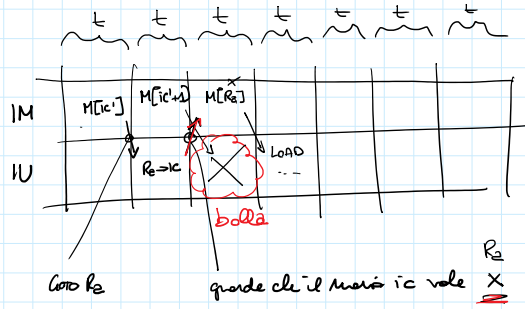 t t t t t t t
IM M[ic'] M[ic'+1] M[Ra]
x
IU Ra→ic LOAD
...
bolla
Ra
GOTO Ra guarda che il nuovo ic vale X